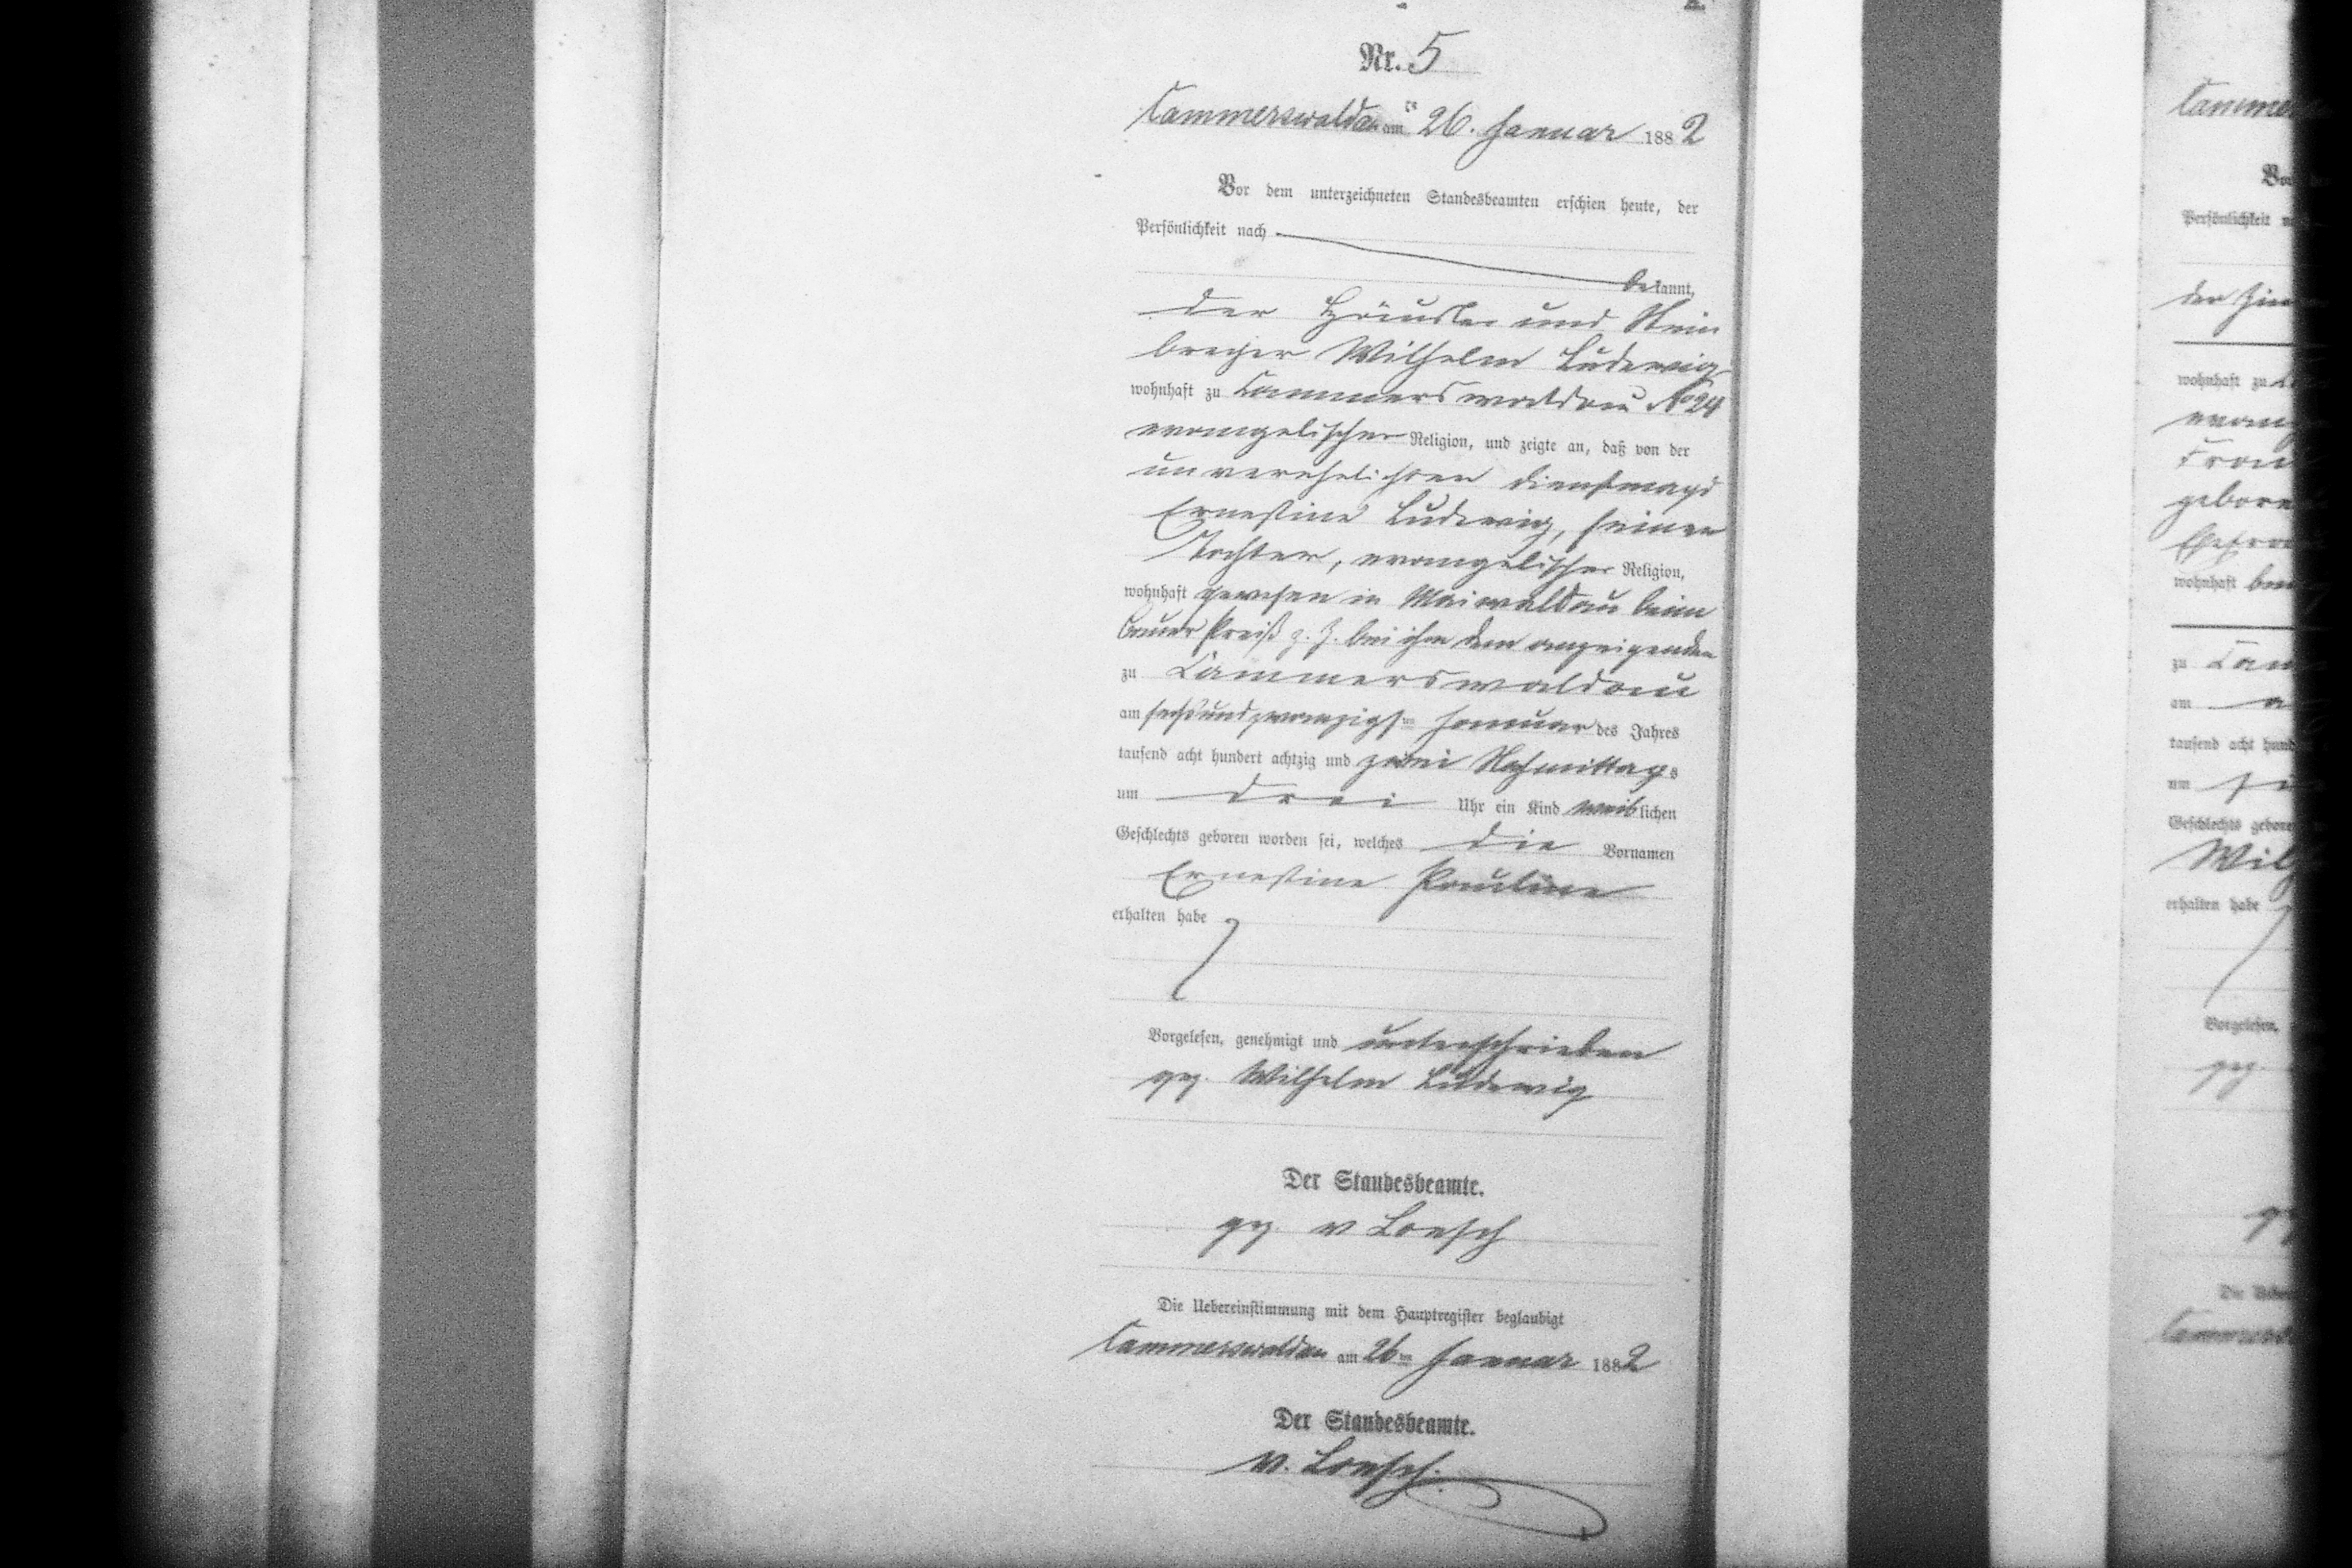 Nr. 5
Cammerswaldau am 26. Januar 1882
Vor dem unterzeichneten Standesbeamten erschien heute, der
Persönlichkeit nach
bekannt,
der Häusler und Stein
brecher Wilhelm Ludewig
wohnhaft zu Cammerswaldau No 24
evangelischer Religion, und zeigte an, daß von der
unverehelichten Dienstmagd
Ernestine Ludewig, seiner
Tochter, evangelischer Religion,
wohnhaft gewesen in Maiwaldau beim
Bauer Preiß z. Z. bei ihm dem anzeigenden
zu Cammerswaldau
am sechsundzwanzigsten Januar des Jahres
tausend acht hundert achtzig und zwei Nachmittags
um drei Uhr ein Kind weiblichen
Geschlechts geboren worden sei, welches die Vornamen
Ernestine Pauline
erhalten habe
Vorgelesen, genehmigt und unterschrieben
gez. Wilhelm Ludewig
Der Standesbeamte.
gez. v Loesch
Die Uebereinstimmung mit dem Hauptregister beglaubigt
Cammerswaldau am 26ten Januar 1882
Der Standesbeamte.
v. Loesch.
Camme
Vor
Persönlichkeit
der
wohnhaft zu
evang
geboren
wohnhaft
zu Cam
am
tausend acht hund
um
Geschlechts gebore
Wilh
erhalten habe
Vorgelesen,
gez.
Die Ueber
Cammers